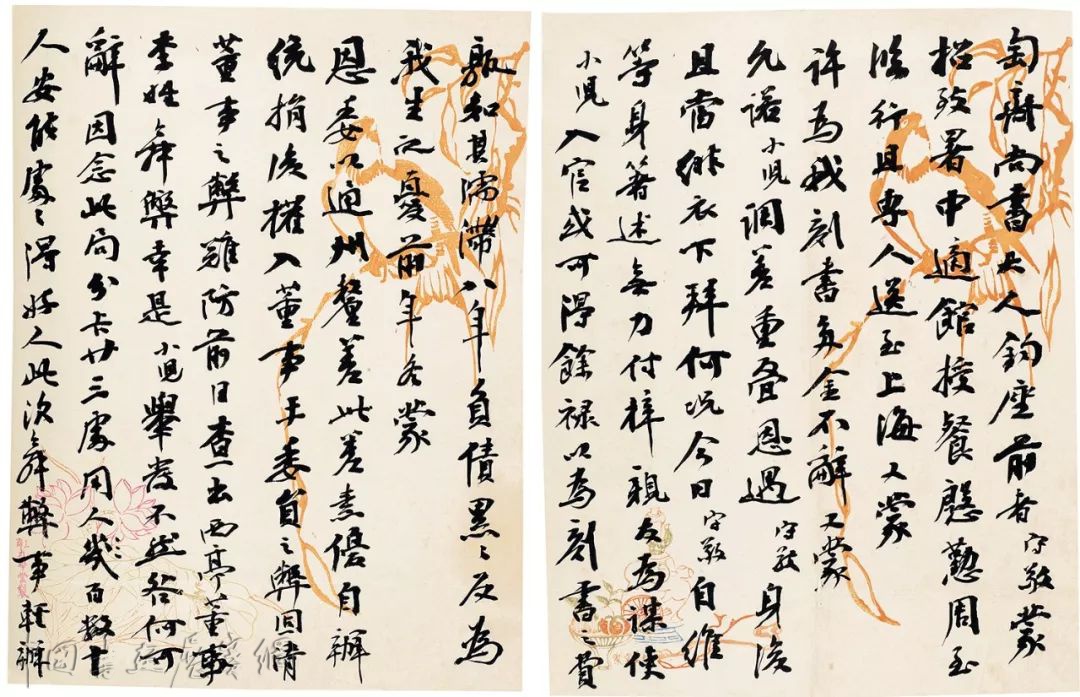 匋齋尚書大人鈞座前者守敬蒙
招致署中適館授餐慇勤周至
臨行且專人送至上海又蒙
許為我刻書多金不辭又蒙
允諾小児調差重叠恩遇守敬身後
且當緋衣下拜何況今日守敬自維
等身著述無力付梓親友為謀使
小児入官或可得餘祿以為刻書之費
孰知其濡滯八年負債累〻反為
我生之憂前年冬蒙
恩委以通州釐差此差素優自辦
統捐後權入董事王委員之弊因清
董事之弊難防前日查出西亭董事
李姓舞弊幸是小児舉發不然咎何可
辭因念此局分卡廿三處用人幾百數十
人安能處〻得好人此次舞弊事輕辦